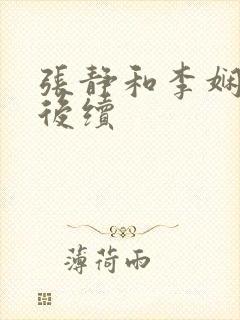 張靜和李娴
後續
薄荷雨